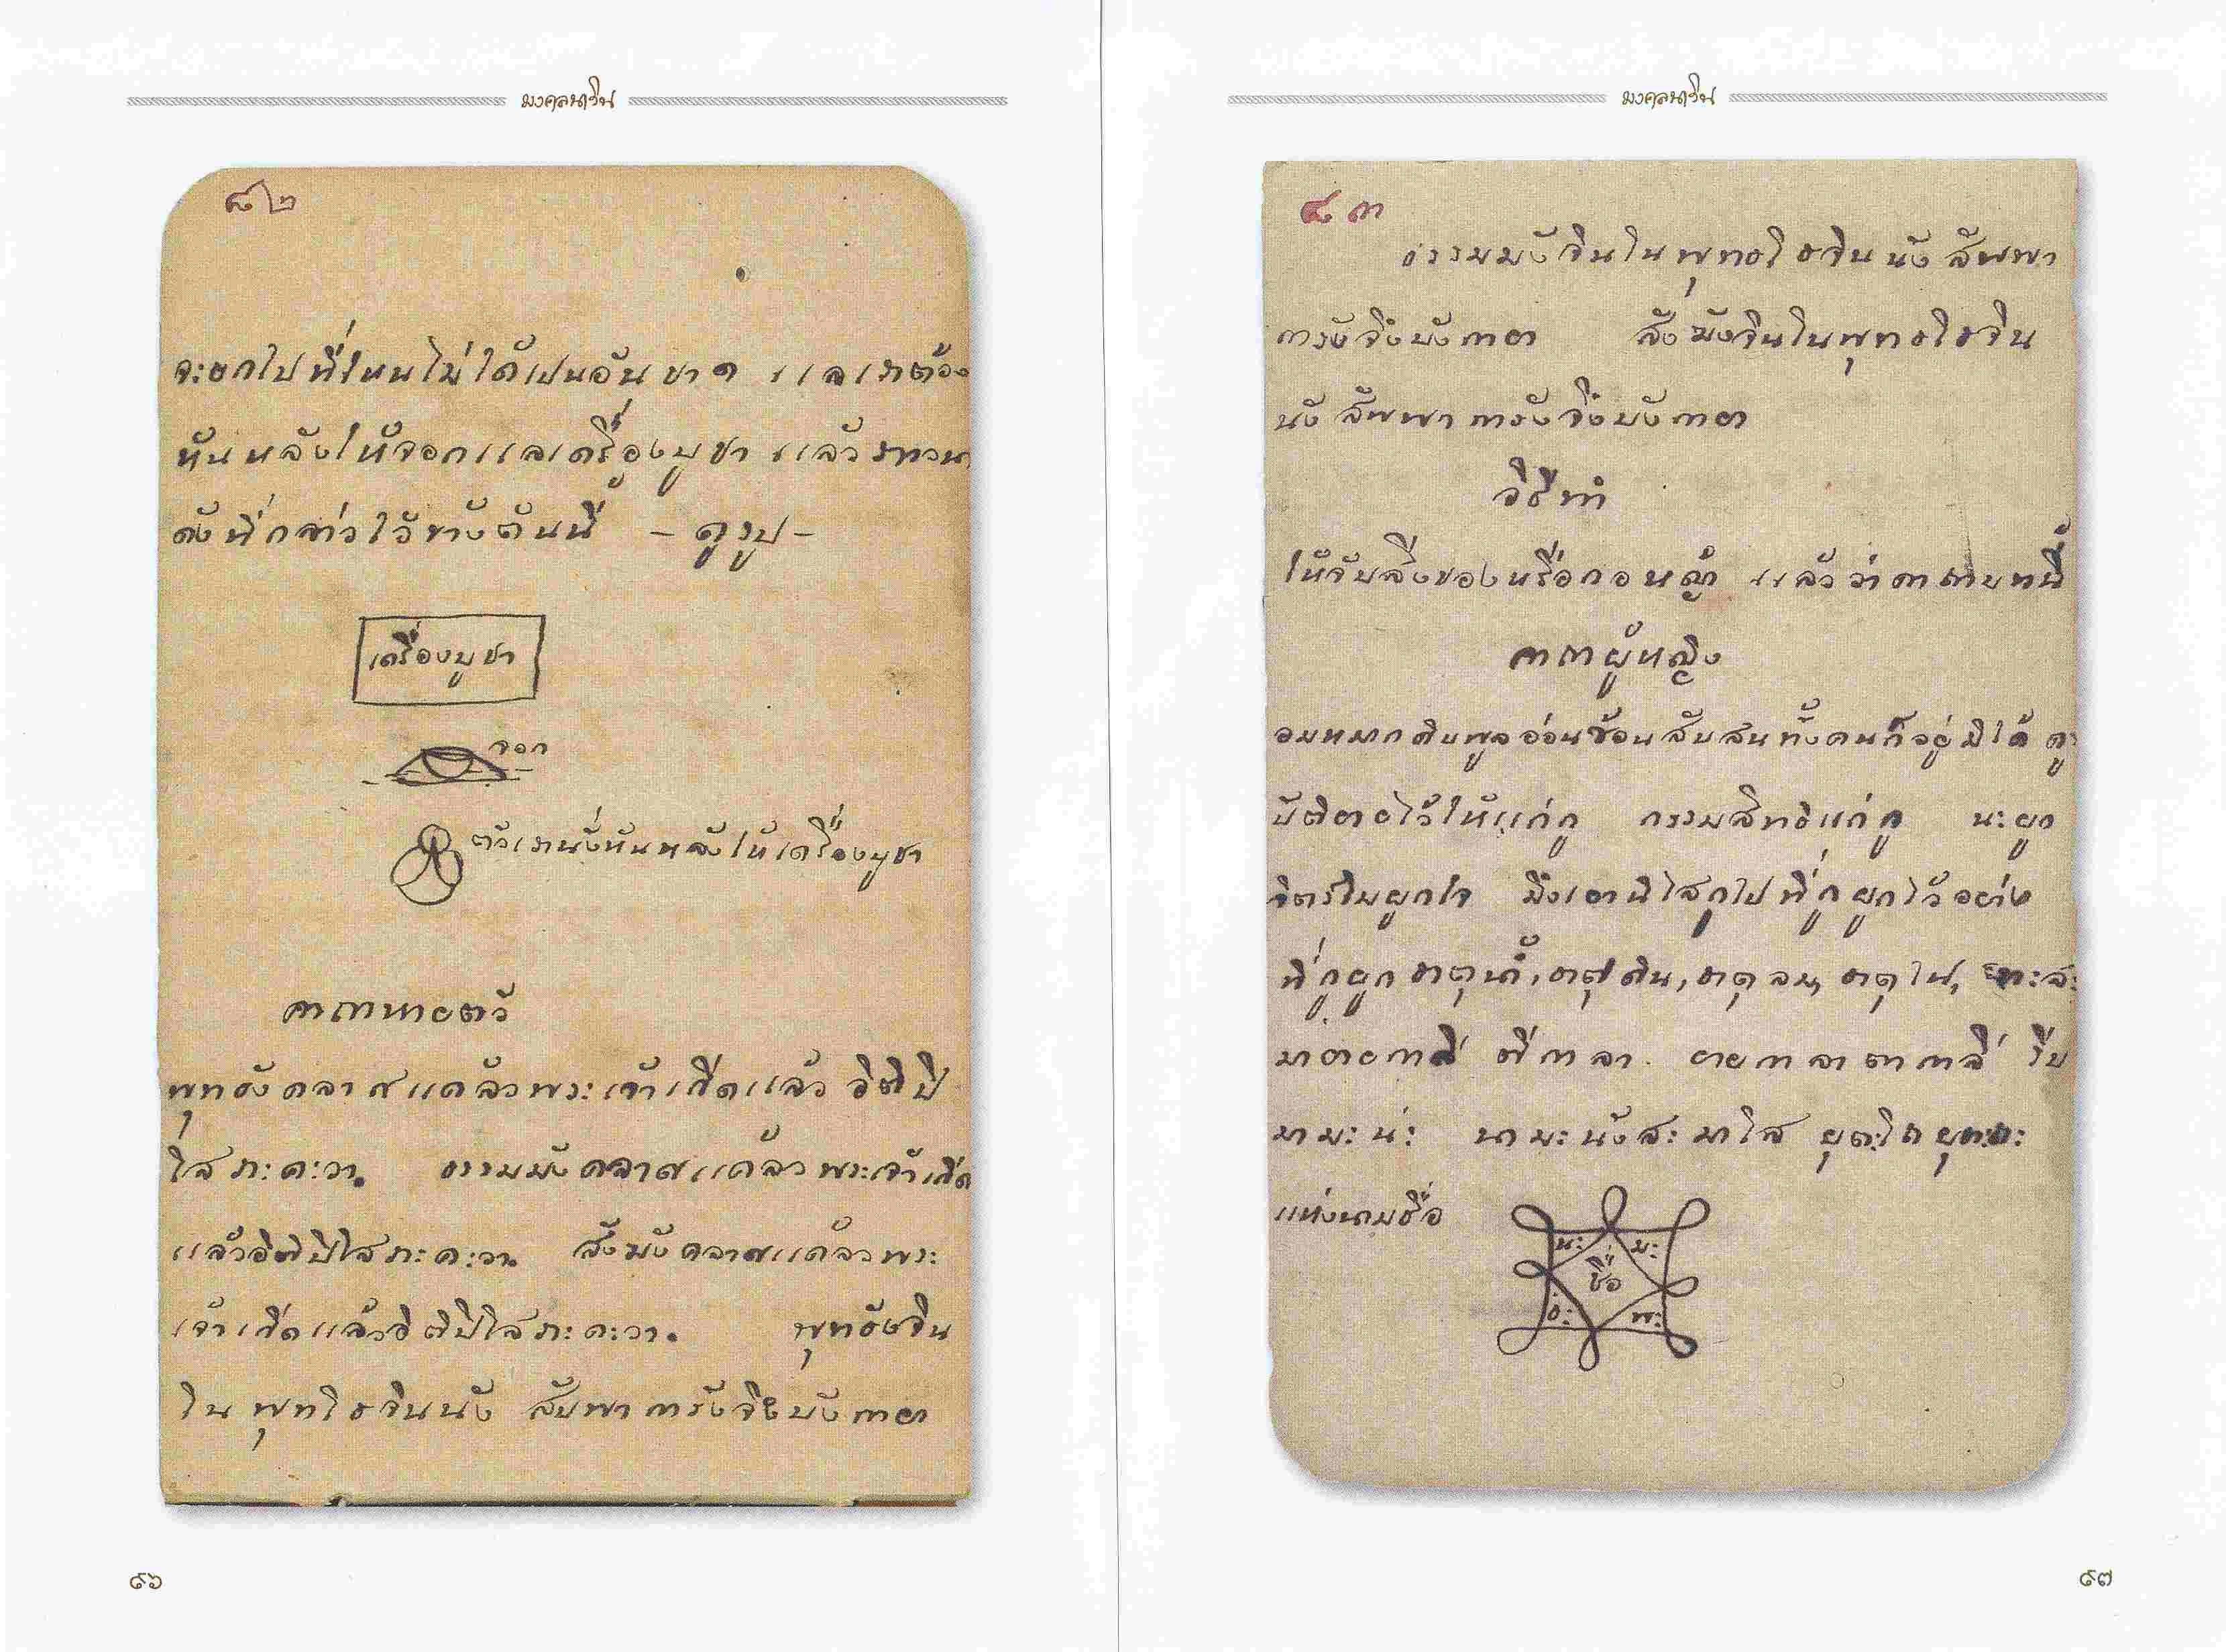 มงคลนาวิน
๘๒
จะยกไปที่ไหนไม่ได้เปนอันขาด แลเราต้อง
หันหลังให้จอกแลเครื่องบูชา แล้วภาวนา
ดังที่กล่าวไว้ข้างต้นนี้ – ดูรูป –
เครื่องบูชา
จอก
ตัวเรานั่งหันหลังให้เครื่องบูชา
คาถาหายตัว
พุทธังคลาศแคล้วพระเจ้าเกิดแล้ว อิติปิ
โสภะคะวา. ธรรมมังคลาศแคล้วพระเจ้าเกิด
แล้วอิติปิโสภะคะวา. สังฆังคลาศแคล้วพระ
เจ้าเกิดแล้วอิติปิโสภะคะวา. พุทธังจิน
โน พุทโธจินนัง สัพพา การังจิงบังกายา
๙๖
มงคลนาวิน
๘๓
ธรรมมังจินโนพุทธโธจินนัง สัพพา
การังจิงบังกายา สังฆังจินโนพุทธโธจิน
นัง สัพพา การังจิงบังกายา
วิธีทำ
ให้จับสิ่งของหรือกอหญ้า แล้วว่าคาถาบทนี้
คาถาผู้หญิง
อมหมากดิบพลูอ่อนซ้อนสับสนทั้งคนก็อยู่มิได้ กู
บัติตายไว้ให้แก่กู กรรมสิทธิแก่กู นะผูก
จิตร์โมผูกใจ มึงเอานิไสกูไป ที่กูผูกไว้อย่าง
ที่กูผูก ธาตุน้ำ, ธาตุดิน, ธาตุลม, ธาตุไฟ,
มาตายกาลี ตีกาลา. ตายกาลาตากาลี รีบ
มามะน่ะ นามะนังสะมาโส ยุตะโถยุตถะ
แห่งนามชื่อ
นะ มะ
ชื่อ
อะ พะ
๙๗